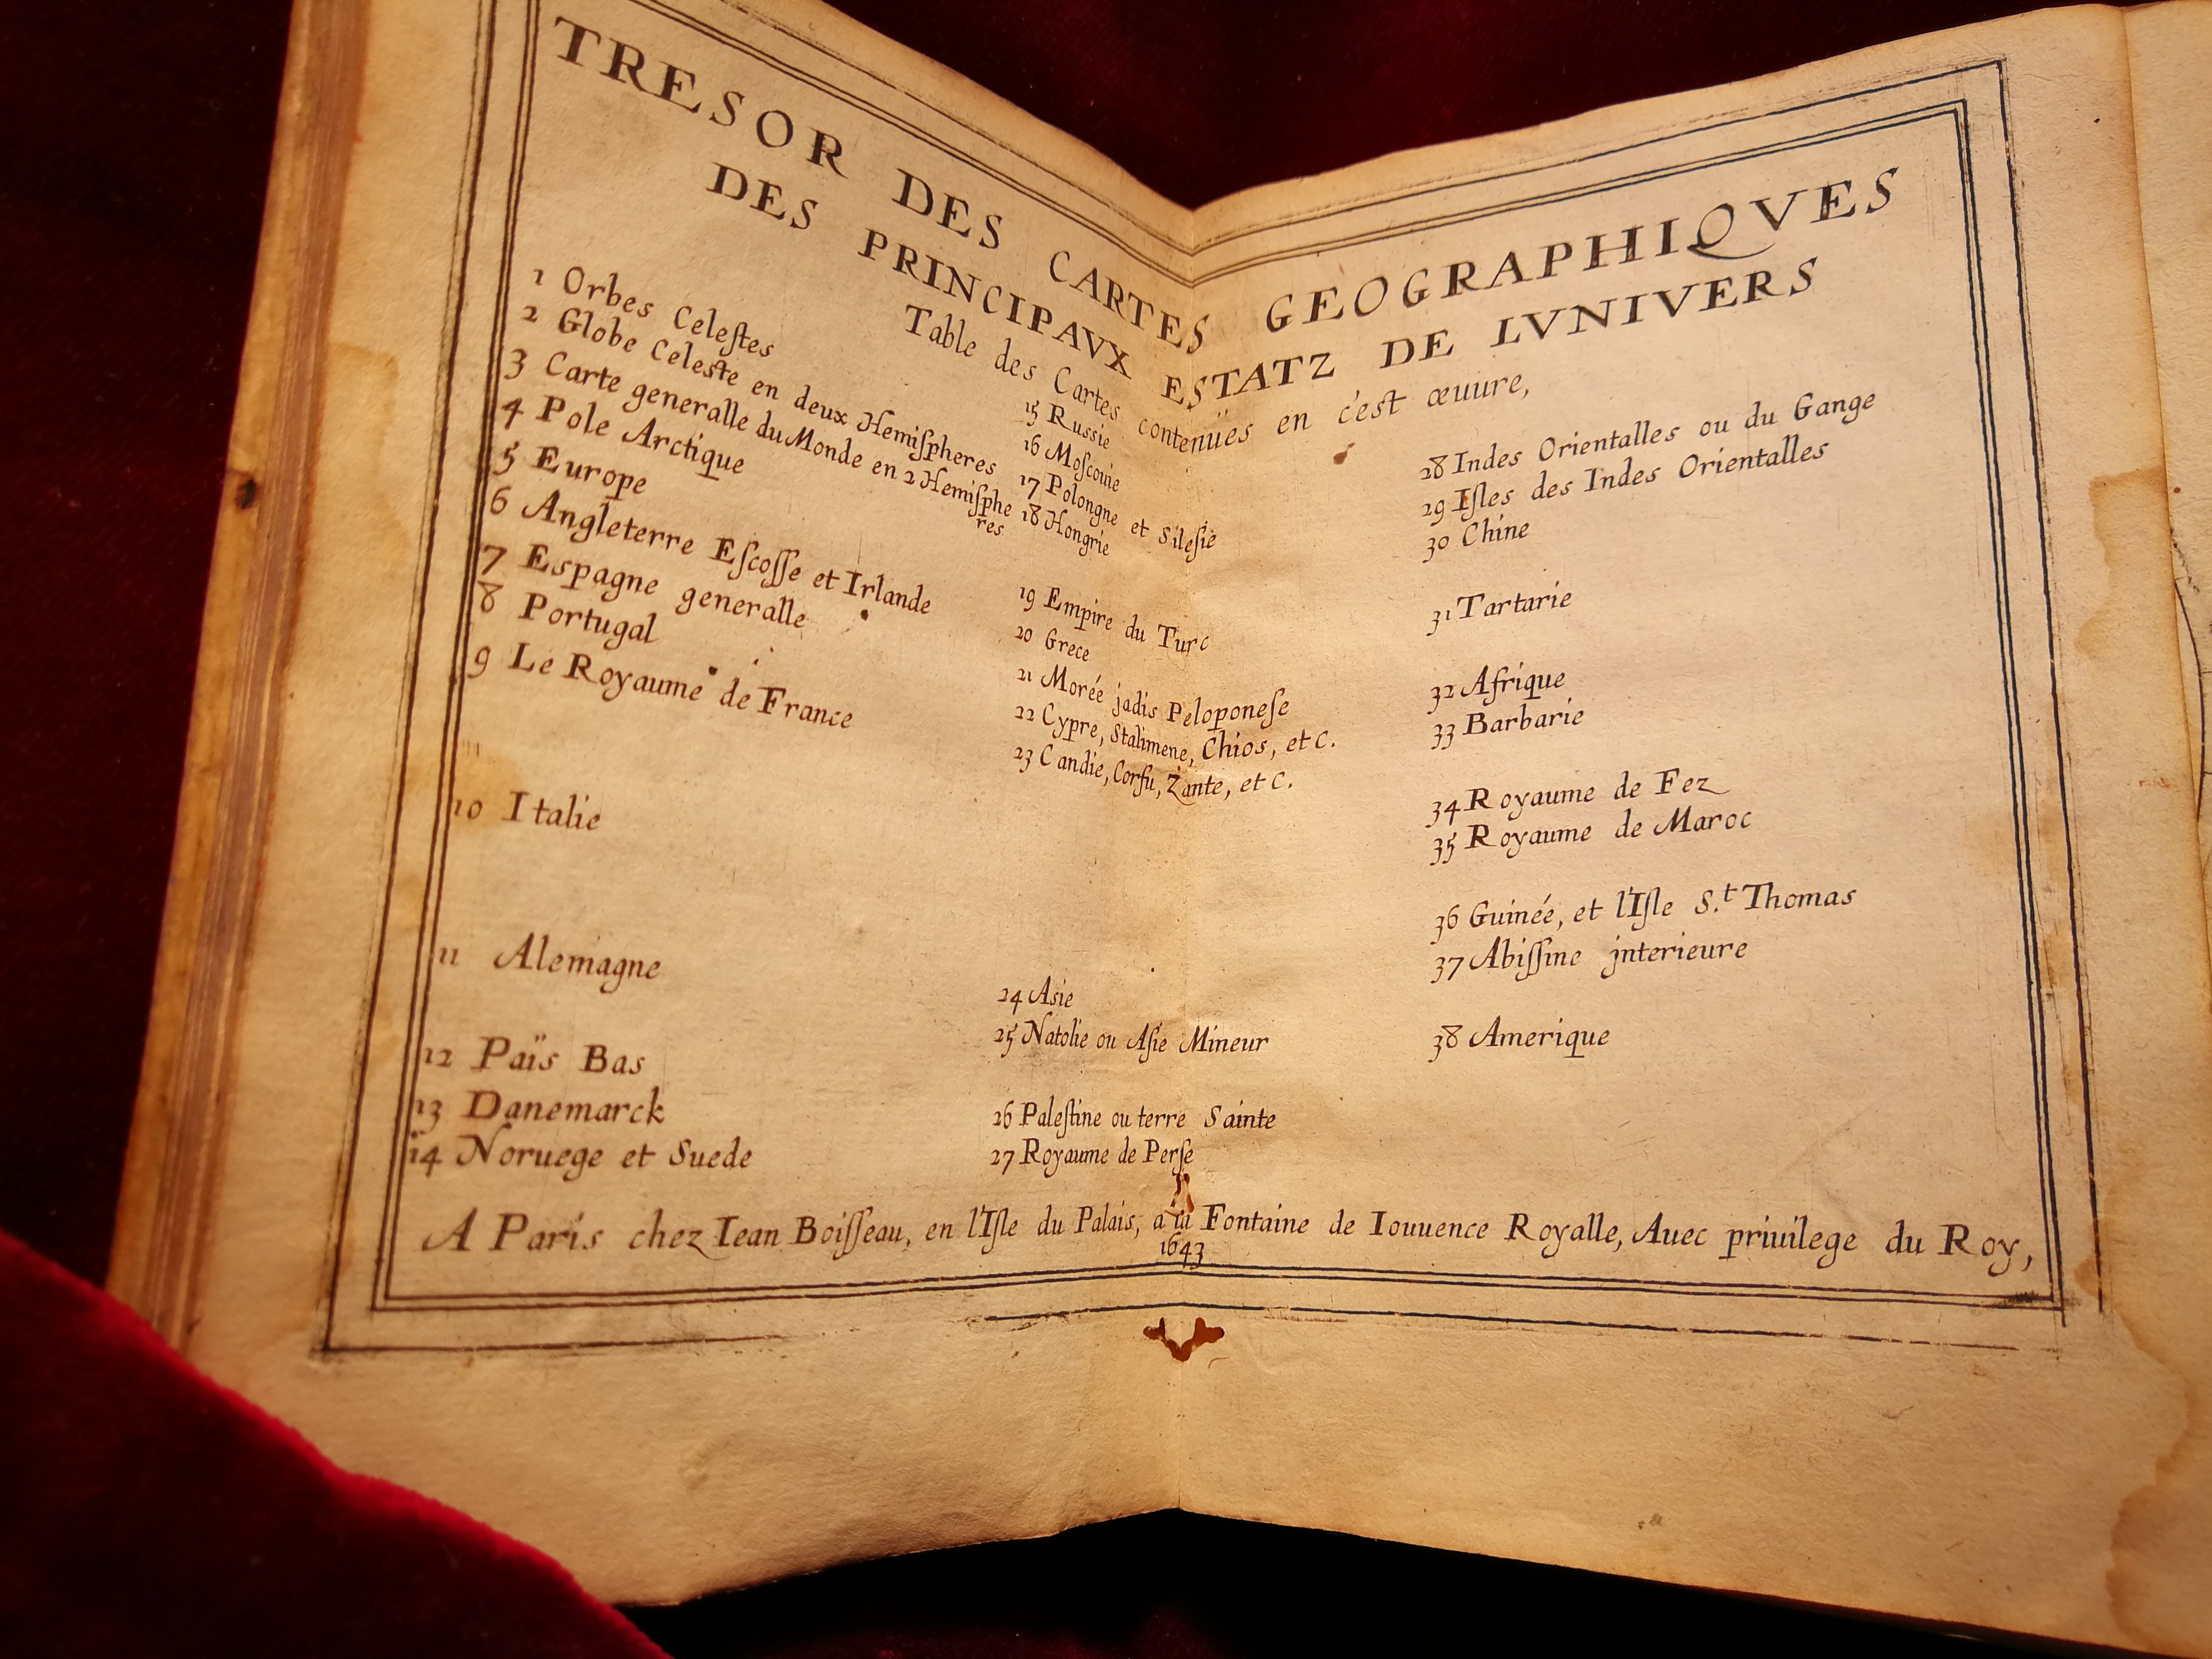 TRESOR DES CARTES GEOGRAPHIQVES
DES PRINCIPAVX ESTATZ DE LVNIVERS
Table des Cartes contenües en c'est œuure,
1 Orbes Celeſtes
2 Globe Celeste en deux Hemiſpheres
3 Carte generalle du Monde en 2 Hemiſphe
res
4 Pole Arctique
5 Europe
6 Angleterre Eſcoſſe et Irlande
7 Espagne generalle
8 Portugal
9 Le Royaume de France
10 Italie
11 Alemagne
12 Païs Bas
13 Danemarck
14 Noruege et Suede
15 Russie
16 Moſcouie
17 Polongne et Sileſie
18 Hongrie
19 Empire du Turc
20 Grece
21 Morée jadis Peloponeſe
22 Cypre, Stalimene, Chios, et c.
23 Candie, Corfu, Zante, et c.
24 Asie
25 Natolie ou Aſie Mineur
26 Paleſtine ou terre Sainte
27 Royaume de Perſe
28 Indes Orientalles ou du Gange
29 Iſles des Indes Orientalles
30 Chine
31 Tartarie
32 Afrique
33 Barbarie
34 Royaume de Fez
35 Royaume de Maroc
36 Guinée, et l'Iſle S.t Thomas
37 Abiſſine jnterieure
38 Amerique
A Paris chez Iean Boiſſeau, en l'Iſle du Palais, a la Fontaine de Iouuence Royalle, Auec priuilege du Roy,
1643